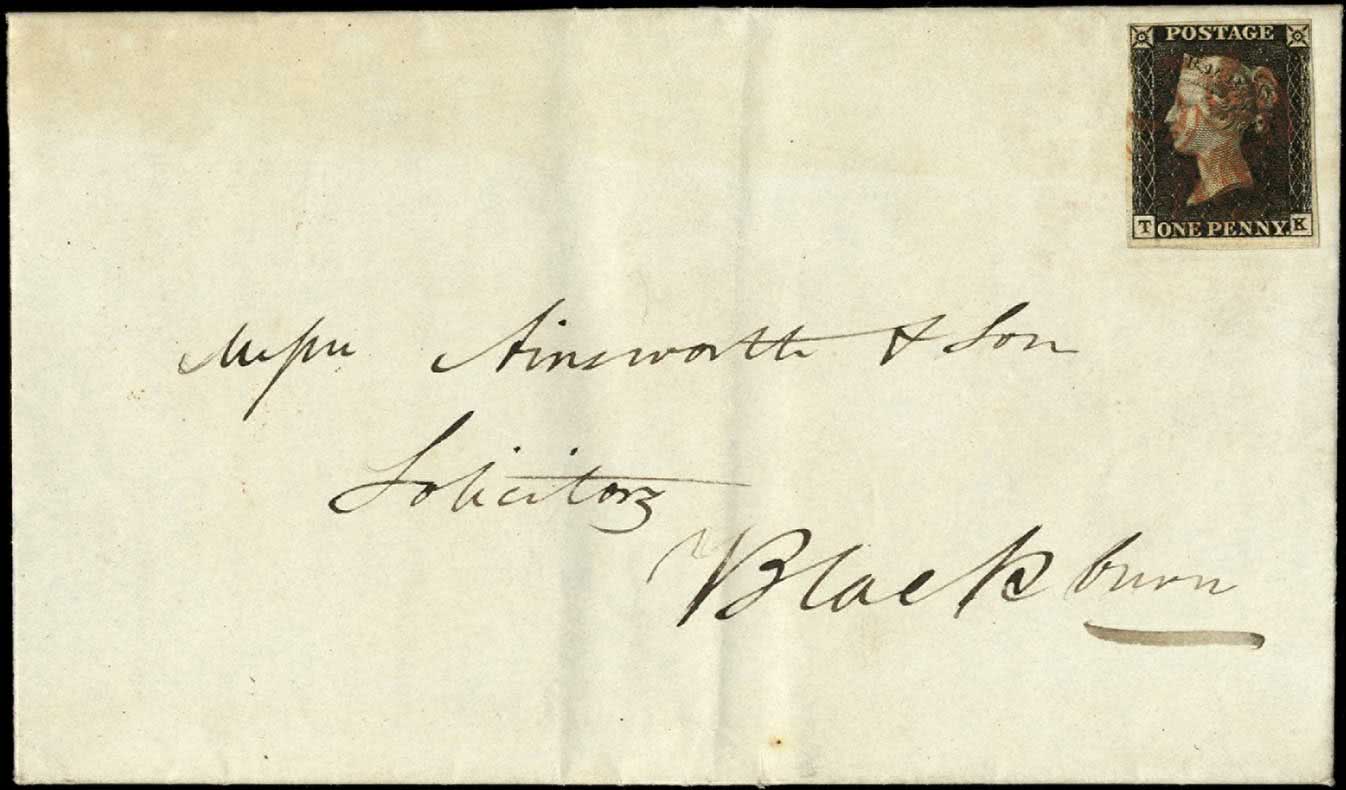 POSTAGE
T ONE PENNY. K
Messrs Ainsworth & Son
Solicitors
Blackburn